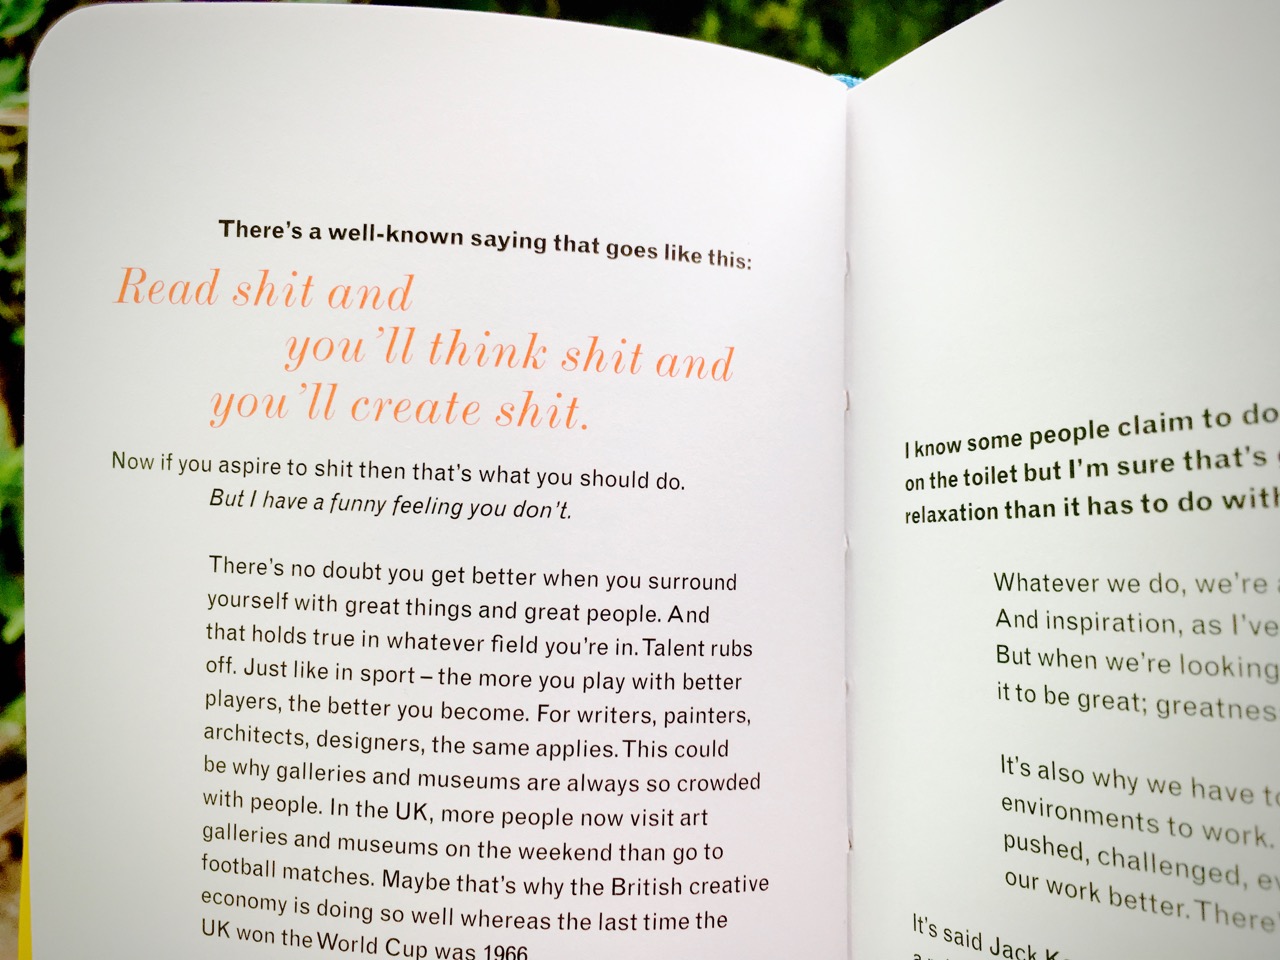 There's a well-known saying that goes like this:
Read shit and
you'll think shit and
you'll create shit.
Now if you aspire to shit then that's what you should do.
But I have a funny feeling you don't.
There's no doubt you get better when you surround
yourself with great things and great people. And
that holds true in whatever field you're in. Talent rubs
off. Just like in sport – the more you play with better
players, the better you become. For writers, painters,
architects, designers, the same applies. This could
be why galleries and museums are always so crowded
with people. In the UK, more people now visit art
galleries and museums on the weekend than go to
football matches. Maybe that's why the British creative
economy is doing so well whereas the last time the
UK won the World Cup was 1966
I know some people claim to do
on the toilet but I'm sure that's
relaxation than it has to do with
Whatever we do, we're
And inspiration, as I've
But when we're looking
it to be great;
It's also why we have to
environments to work.
pushed, challenged,
our work better. There'
It's said Jack